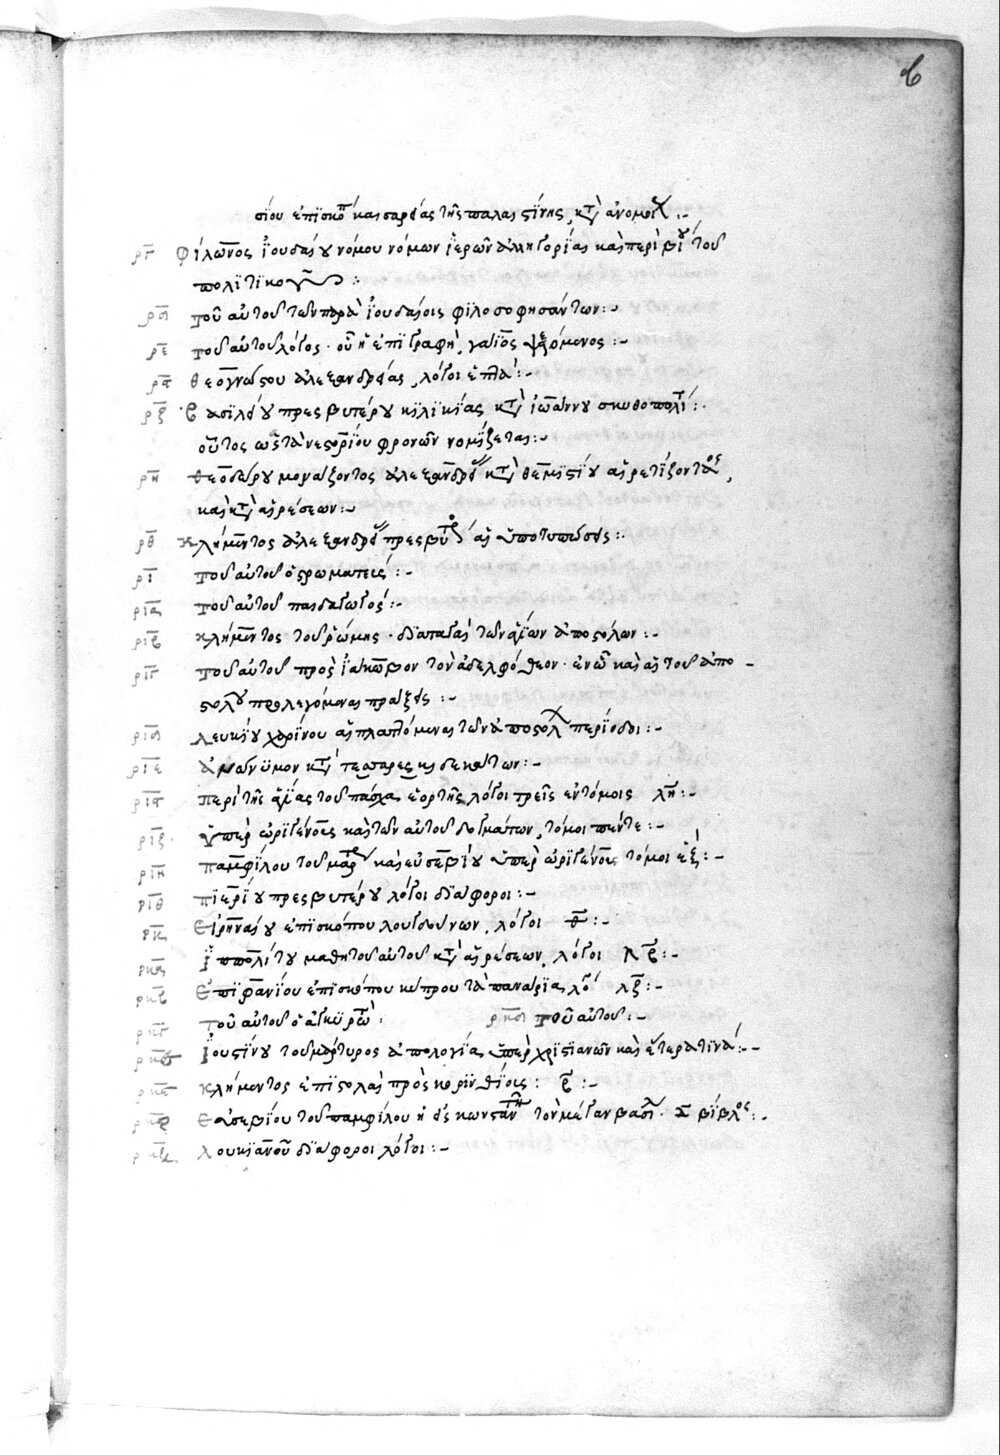 6
σίου ἐπισκό καισαρείας τῆς παλαιστίνης, κτ̀ ἀνομοί :-
ργ φίλωνος ἰουδαίου νόμων ἱερῶν ἀλληγορίας καὶ περὶ βίου τοῦ
πολιτικοῦ :
ρδ τοῦ αὐτοῦ τῶν παρὰ ἰουδαίοις φιλοσοφησάντων :-
ρε τοῦ αὐτοῦ λόγος· οὗ ἡ ἐπιγραφή, γάιος ψεγόμενος :-
ρϛ θεογνώστου ἀλεξανδρέως, λόγοι ἑπτά :-
ρζ βασιλείου πρεσβυτέρου κιλικίας κτ̀ ἰωάννου σκυθοπολί :
οὗτος ὡς τὰ νεστορίου φρονῶν νομίζεται :-
ρη θεοδώρου μονάζοντος ἀλεξανδρέ κτ̀ θεμιστίου αἱρετίζοντος,
καὶ κτ̀ αἱρέσεων :-
ρθ κλήμεντος ἀλεξανδρέ πρεσβυτέρ αἱ ὑποτυπώσεις :-
ρι τοῦ αὐτοῦ οἱ στρωματεῖς :-
ρια τοῦ αὐτοῦ παιδαγωγός :-
ριβ κλήμεντος τοῦ ῥώμης· διαταγαὶ τῶν ἁγίων ἀποστόλων :-
ριγ τοῦ αὐτοῦ πρὸς ἰάκωβον τὸν ἀδελφόθεον· ἐν ᾧ καὶ αἱ τοῦ ἀπο-
στόλου πέτρου λεγόμεναι πράξεις :-
ριδ λευκίου χαρίνου αἱ πλαττόμεναι τῶν ἀποστόλ περίοδοι :-
ριε ἀνώνυμον κτ̀ τεσσαρεσκαιδεκατιτῶν :-
ριϛ περὶ τῆς ἁγίας τοῦ πάσχα ἑορτῆς, λόγοι τρεῖς ἐν τόμοις λη :-
ριζ ὑπὲρ ὠριγένους καὶ τῶν αὐτοῦ δογμάτων, τόμοι πέντε :-
ριη παμφίλου τοῦ μάρτ καὶ εὐσεβίου ὑπὲρ ὠριγένους τόμοι ἕξ :-
ριθ πιερίου πρεσβυτέρου λόγοι διάφοροι :-
ρκ εἰρηναίου ἐπισκόπου λουγδούνων, λόγοι ε :-
ρκα ἱππολίτου μαθητοῦ αὐτοῦ κτ̀ αἱρέσεων, λόγοι λβ :-
ρκβ ἐπιφανίου ἐπισκόπου κύπρου τὰ πανάρια, λό λζ :-
ρκγ τοῦ αὐτοῦ ὁ ἀγκυρω : ρκδ τοῦ αὐτοῦ :-
ρκε ἰουστίνου τοῦ μάρτυρος ἀπολογία ὑπὲρ χριστιανῶν καὶ ἕτερά τινα :-
ρκϛ κλήμεντος ἐπιστολαὶ πρὸς κορινθίοις : β :-
ρκζ εὐσεβίου τοῦ παμφίλου ἡ εἰς κωνσταντῖ τὸν μέγαν βασιλ· δ βίβλος :-
ρκη λουκιανοῦ διάφοροι λόγοι :-